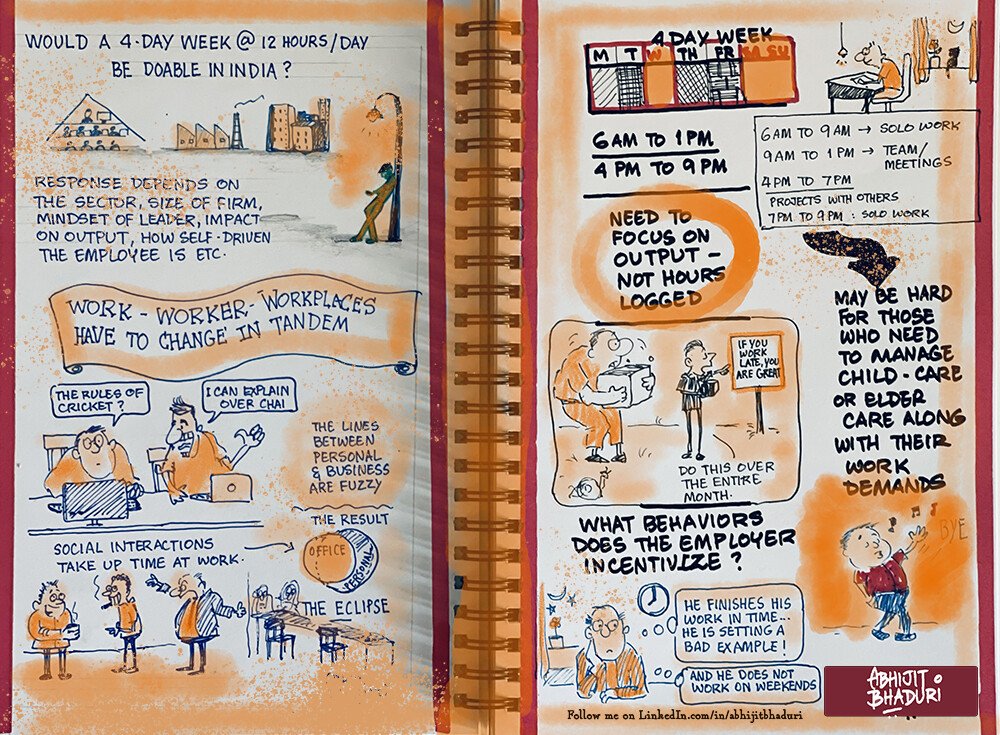 WOULD A 4-DAY WEEK @ 12 HOURS/DAY
BE DOABLE IN INDIA?
RESPONSE DEPENDS ON
THE SECTOR, SIZE OF FIRM,
MINDSET OF LEADER, IMPACT
ON OUTPUT, HOW SELF-DRIVEN
THE EMPLOYEE IS ETC.
WORK - WORKER - WORKPLACES
HAVE TO CHANGE IN TANDEM
THE RULES OF
CRICKET?
I CAN EXPLAIN
OVER CHAI
THE LINES
BETWEEN
PERSONAL
& BUSINESS
ARE FUZZY
SOCIAL INTERACTIONS
TAKE UP TIME AT WORK.
THE RESULT
OFFICE
PERSONAL
THE ECLIPSE
4 DAY WEEK
M T W TH FR SA SU
6 AM TO 1 PM
4 PM TO 9 PM
6 AM TO 9 AM → SOLO WORK
9 AM TO 1 PM → TEAM/
MEETINGS
4 PM TO 7 PM
PROJECTS WITH OTHERS
7 PM TO 9 PM : SOLO WORK
NEED TO
FOCUS ON
OUTPUT -
NOT HOURS
LOGGED
MAY BE HARD
FOR THOSE
WHO NEED
TO MANAGE
CHILD-CARE
OR ELDER
CARE ALONG
WITH THEIR
WORK
DEMANDS
IF YOU
WORK
LATE, YOU
ARE GREAT
DO THIS OVER
THE ENTIRE
MONTH.
WHAT BEHAVIORS
DOES THE EMPLOYER
INCENTIVIZE?
BYE
HE FINISHES HIS
WORK IN TIME...
HE IS SETTING A
BAD EXAMPLE!
AND HE DOES NOT
WORK ON WEEKENDS
ABHIJIT
BHADURI
Follow me on LinkedIn.com/in/abhijitbhaduri